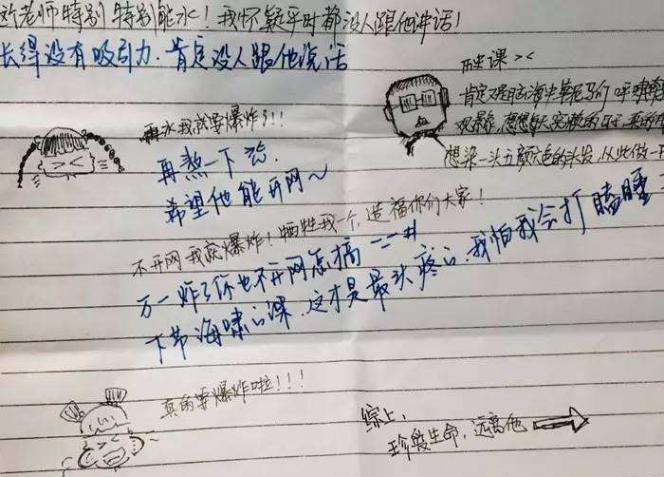 老师特别特别能水！我怀疑平时都没人跟他讲话！
长得没有吸引力，肯定没人跟他说话
历史课 ><
再水我就要爆炸了!!!
再熬一下
希望他能开网～
想染一头五颜六色的头发，从此做一
不开网我就爆炸！牺牲我一个，造福你们大家！
万一炸了你也不开网怎搞
下节海啸的课，这才是最头疼的，我怕我会打瞌睡
真的要爆炸啦！！！
综上，
珍爱生命，远离他